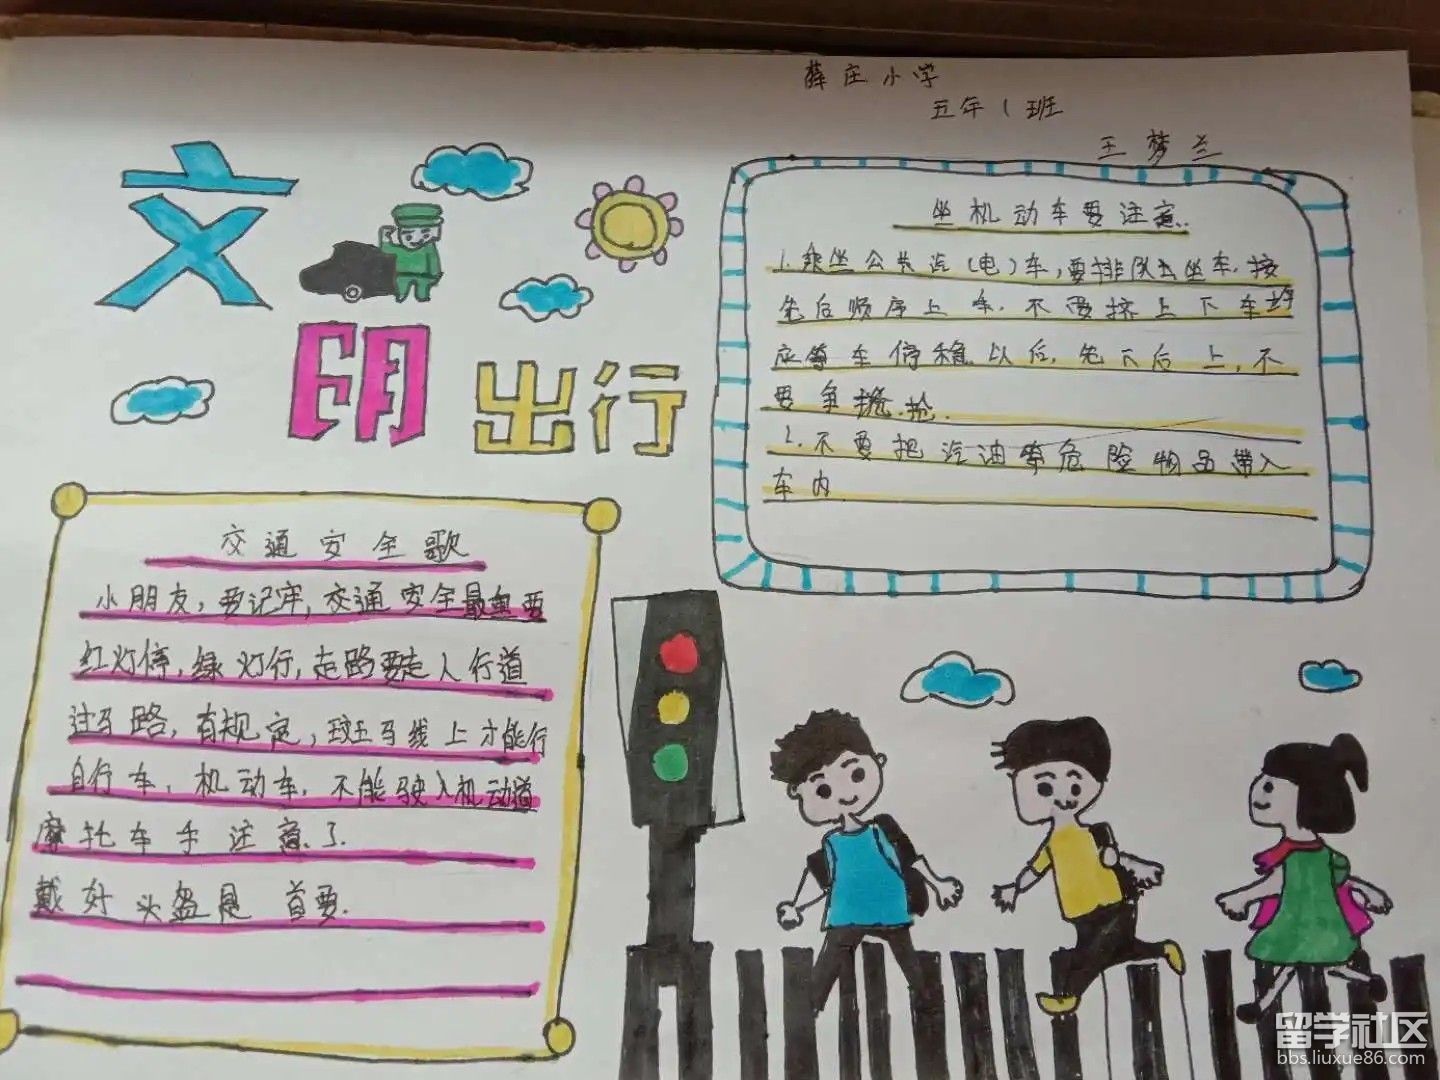 薛庄小学
五年1班
王梦兰
文明出行
坐机动车要注意.
1.乘坐公共汽(电)车,要排队去坐车.按
先后顺序上车.不要挤上下车均
应等车停稳以后,先下后上,不
要争抢.
2.不要把汽油等危险物品带入
车内
交通安全歌
小朋友,要记牢,交通安全最重要
红灯停,绿灯行,走路要走人行道
过马路,有规定,斑马线上才能行
自行车,机动车,不能驶入机动道
摩托车手注意了.
戴好头盔是首要.
留学社区
bbs.liuxue86.com